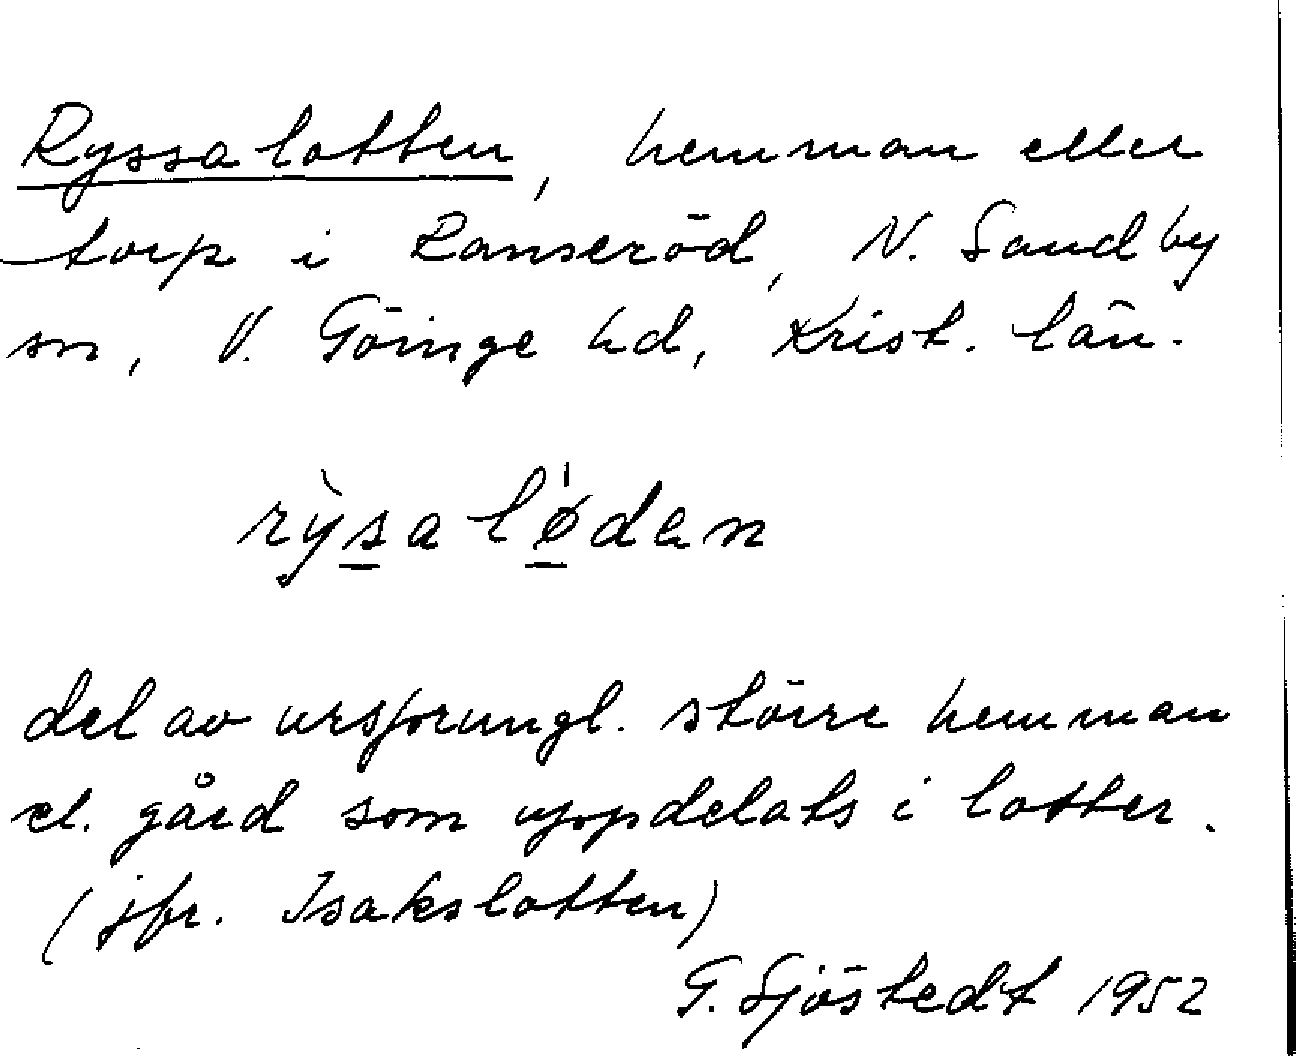 Ryssalotten, hemman eller
torp i Ranseröd, N. Sandby
sn, V. Göinge hd, Krist. län.
rỳsalø̀dan
del av ursprungl. större hemman
el. gård som uppdelats i lotter.
(jfr. Isakslotten)
G. Sjöstedt 1952